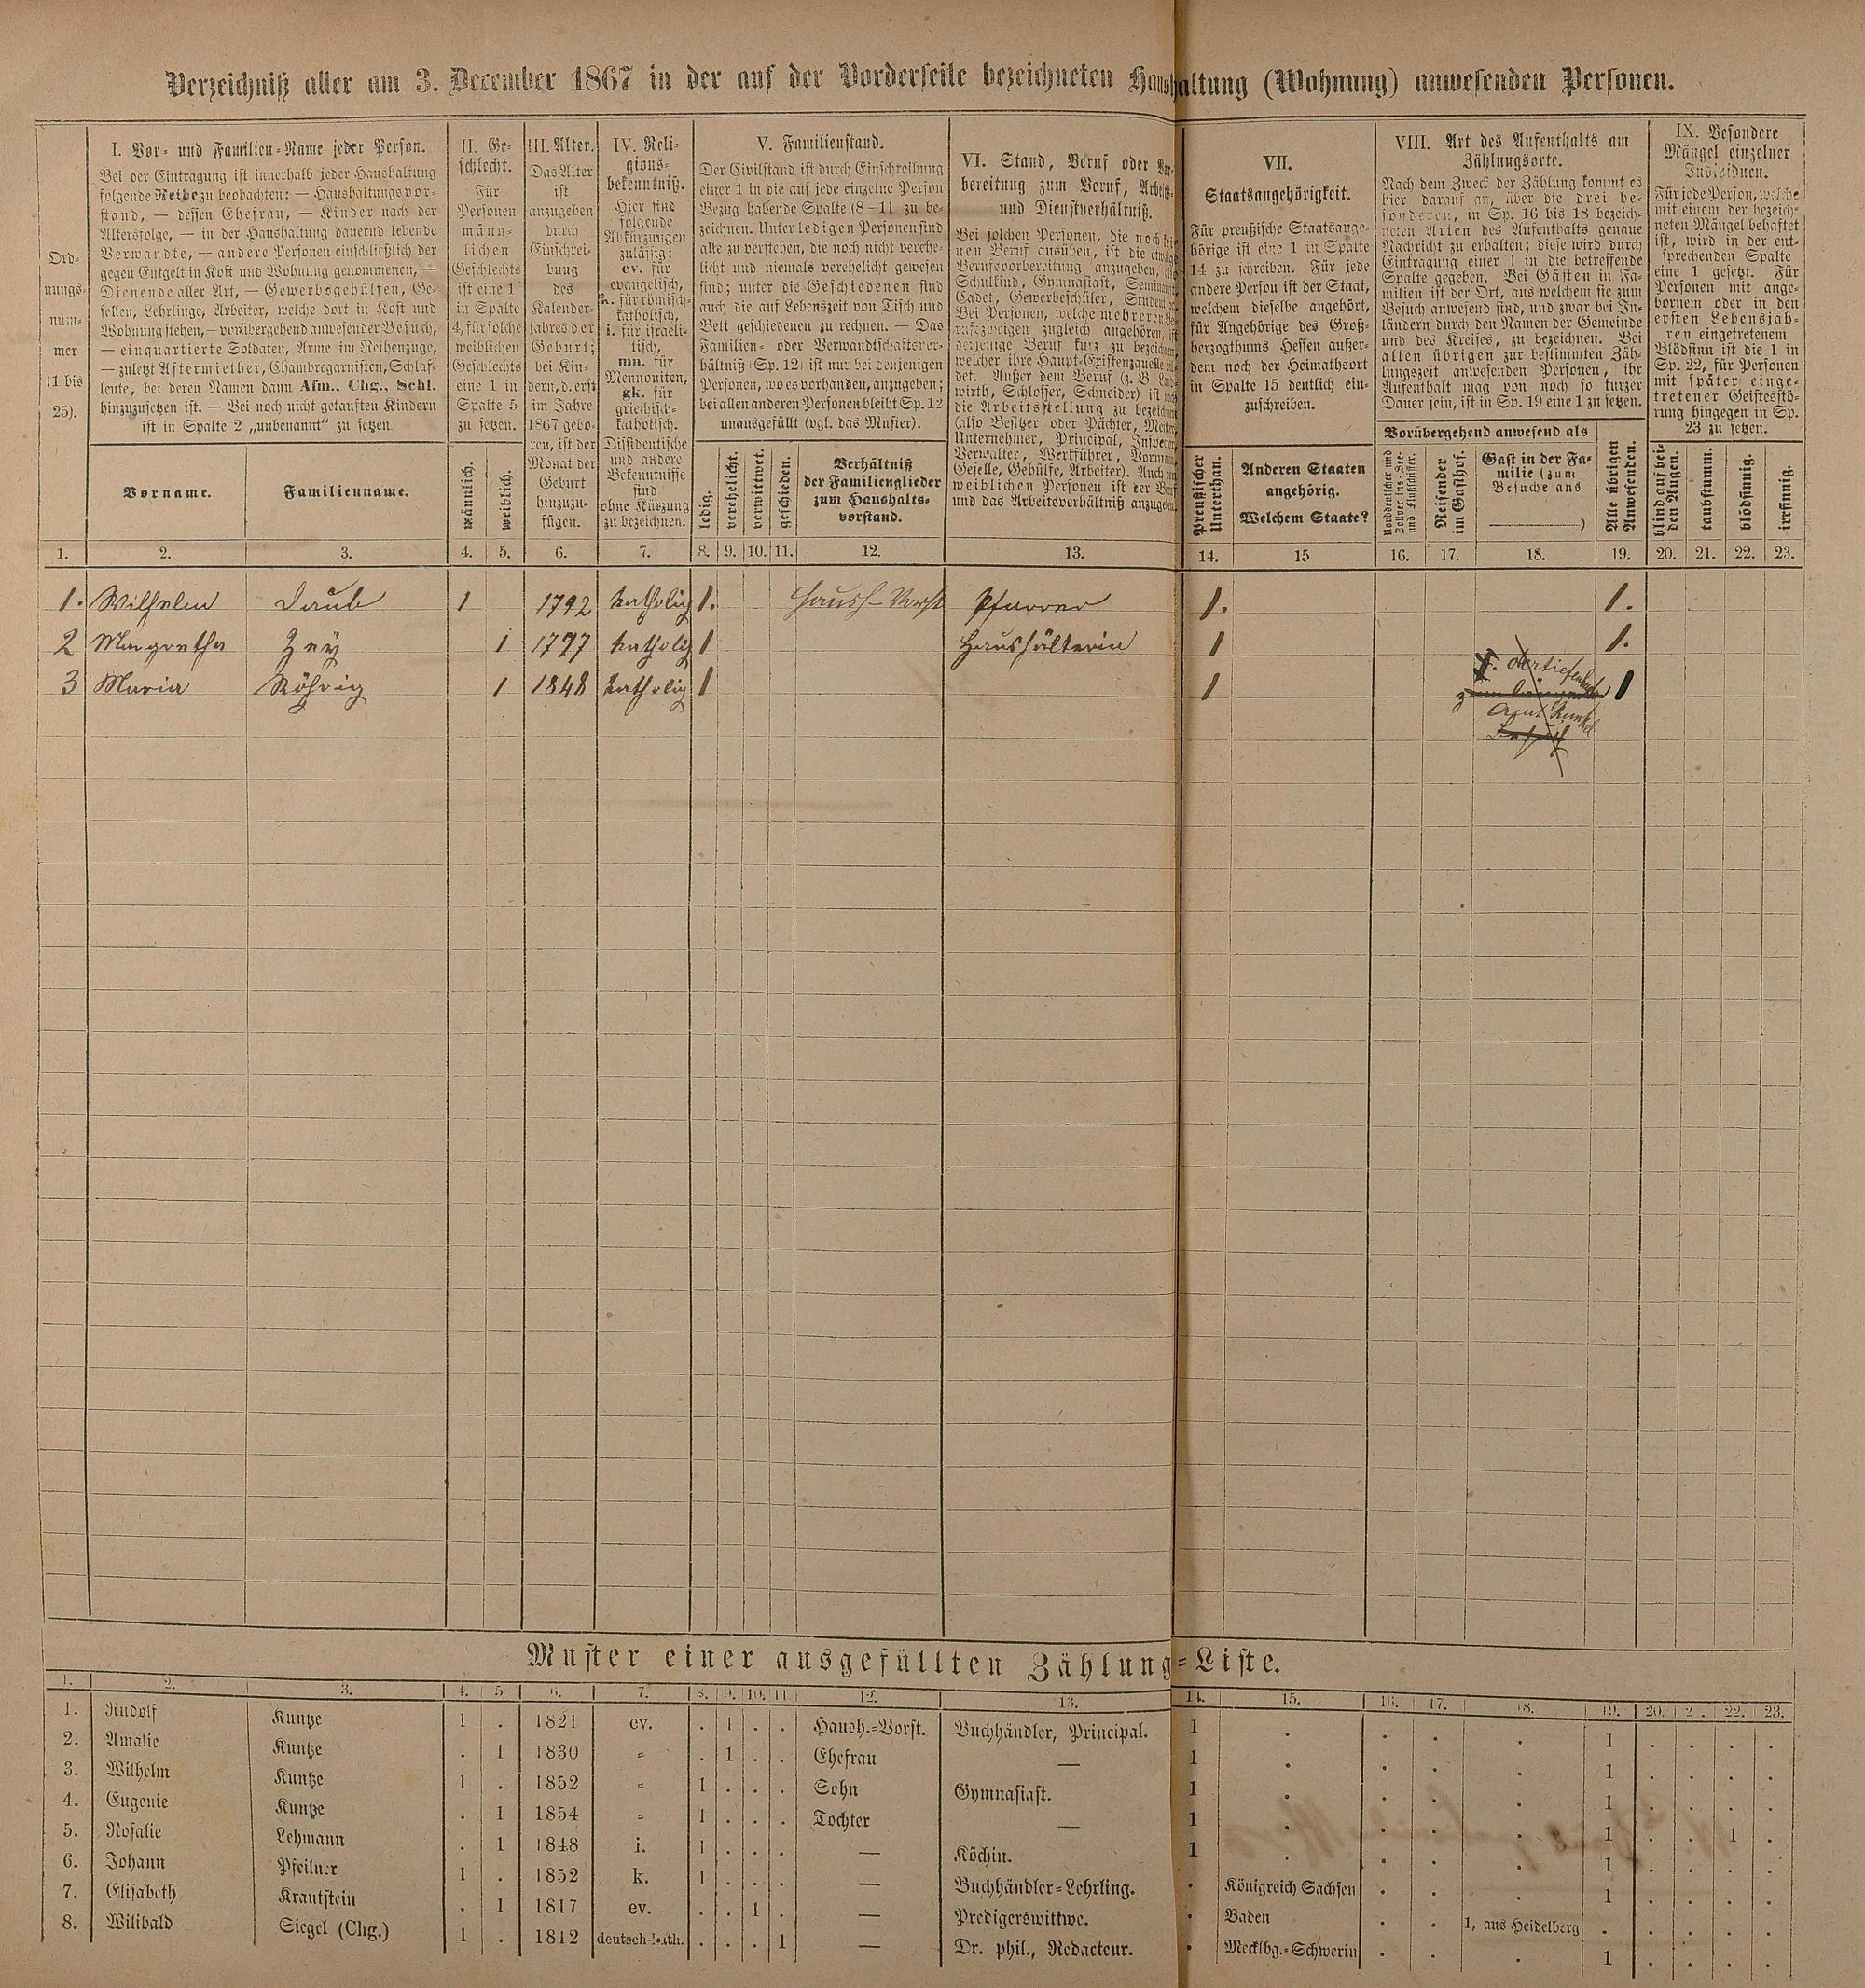 Verzeichniß aller am 3. December 1867 in der auf der Vorderseite bezeichneten Haushaltung (Wohnung) anwesenden Personen.
Ord-
nungs-
num-
mer
(1 bis
25).
I. Vor- und Familien-Name jeder Person.
Bei der Eintragung ist innerhalb jeder Haushaltung
folgende Reihe zu beobachten: — Haushaltungsvor-
stand, — dessen Ehefrau, — Kinder nach der
Altersfolge, — in der Haushaltung dauernd lebende
Verwandte, — andere Personen einschließlich der
gegen Entgelt in Kost und Wohnung genommenen, —
Dienende aller Art, — Gewerbsgehülfen, Ge-
sellen, Lehrlinge, Arbeiter, welche dort in Kost und
Wohnung stehen, — vorübergehend anwesender Besuch,
— einquartierte Soldaten, Arme im Reihenzuge,
— zuletzt Aftermiether, Chambregarnisten, Schlaf-
leute, bei deren Namen dann Afm., Chg., Schl.
hinzuzusetzen ist. — Bei noch nicht getauften Kindern
ist in Spalte 2 „unbenannt“ zu setzen
Vorname.
Familienname.
II. Ge-
schlecht.
Für
Personen
männ-
lichen
Geschlechts
ist eine 1
in Spalte
4, für solche
weiblichen
Geschlechts
eine 1 in
Spalte 5
zu setzen.
männlich.
weiblich.
III. Alter.
Das Alter
ist
anzugeben
durch
Einschrei-
bung
des
Kalender-
jahres der
Geburt;
bei Kin-
dern, d. erst
im Jahre
1867 gebo-
ren, ist der
Monat der
Geburt
hinzuzu-
fügen.
IV. Reli-
gions-
bekenntniß.
Hier sind
folgende
Abkürzungen
zulässig:
ev. für
evangelisch,
k. für römisch-
katholisch,
i. für israeli-
tisch,
mn. für
Mennoniten,
gk. für
griechisch-
katholisch.
Dissidentische
und andere
Bekenntnisse
sind
ohne Kürzung
zu bezeichnen.
V. Familienstand.
Der Civilstand ist durch Einschreibung
einer 1 in die auf jede einzelne Person
Bezug habende Spalte (8—11 zu be-
zeichnen. Unter ledigen Personen sind
alle zu verstehen, die noch nicht verehe-
licht und niemals verehelicht gewesen
sind; unter die Geschiedenen sind
auch die auf Lebenszeit von Tisch und
Bett geschiedenen zu rechnen. — Das
Familien- oder Verwandtschaftsver-
hältniß (Sp. 12) ist nur bei denjenigen
Personen, wo es vorhanden, anzugeben;
bei allen anderen Personen bleibt Sp. 12
unausgefüllt (vgl. das Muster).
ledig.
verehelicht.
verwittwet.
geschieden.
Verhältniß
der Familienglieder
zum Haushalts-
vorstand.
VI. Stand, Beruf oder Vor-
bereitung zum Beruf, Arbeits-
und Dienstverhältniß.
Bei solchen Personen, die noch kei-
nen Beruf ausüben, ist die etwaige
Berufsvorbereitung anzugeben, also
Schulkind, Gymnasiast, Seminarist,
Cadet, Gewerbeschüler, Student
Bei Personen, welche mehreren Be-
rufszweigen zugleich angehören, ist
derjenige Beruf kurz zu bezeichnen,
welcher ihre Haupt-Existenzquelle bil-
det. Außer dem Beruf (z. B. Land-
wirth, Schlosser, Schneider) ist noch
die Arbeitsstellung zu bezeichnen
(also Besitzer oder Pächter, Meister,
Unternehmer, Principal, Inspector,
Verwalter, Werkführer, Vormann,
Geselle, Gehülfe, Arbeiter). Auch
weiblichen Personen ist der Beruf
und das Arbeitsverhältniß anzugeben.
VII.
Staatsangehörigkeit.
Für preußische Staatsange-
hörige ist eine 1 in Spalte
14 zu schreiben. Für jede
andere Person ist der Staat,
welchem dieselbe angehört,
für Angehörige des Groß-
herzogthums Hessen außer-
dem noch der Heimathsort
in Spalte 15 deutlich ein-
zuschreiben.
Preußischer
Unterthan.
Anderen Staaten
angehörig.
Welchem Staate?
VIII. Art des Aufenthalts am
Zählungsorte.
Nach dem Zweck der Zählung kommt es
hier darauf an, über die drei be-
sonderen, in Sp. 16 bis 18 bezeich-
neten Arten des Aufenthalts genaue
Nachricht zu erhalten; diese wird durch
Eintragung einer 1 in die betreffende
Spalte gegeben. Bei Gästen in Fa-
milien ist der Ort, aus welchem sie zum
Besuch anwesend sind, und zwar bei In-
ländern durch den Namen der Gemeinde
und des Kreises, zu bezeichnen. Bei
allen übrigen zur bestimmten Zäh-
lungszeit anwesenden Personen, ihr
Aufenthalt mag von noch so kurzer
Dauer sein, ist in Sp. 19 eine 1 zu setzen.
Vorübergehend anwesend als
Norddeutscher und
Zollverins-See-
und Flußschiffer.
Reisender
im Gasthof.
Gast in der Fa-
milie (zum
Besuche aus
)
Alle übrigen
Anwesenden.
IX. Besondere
Mängel einzelner
Individuen.
Für jede Person, welche
mit einem der bezeich-
neten Mängel behaftet
ist, wird in der ent-
sprechenden Spalte
eine 1 gesetzt. Für
Personen mit ange-
bornem oder in den
ersten Lebensjah-
ren eingetretenem
Blödsinn ist die 1 in
Sp. 22, für Personen
mit später einge-
tretener Geistesstö-
rung hingegen in Sp.
23 zu setzen.
blind auf bei-
den Augen.
taubstumm.
blödsinnig.
irrsinnig.
1. 2. 3. 4. 5. 6. 7. 8. 9. 10. 11. 12. 13. 14. 15 16. 17. 18. 19. 20. 21. 22. 23.
1. Wilhelm Daub 1 1792 katholis 1. Haush-Vorst Pfarrer 1. 1.
2 Margretha Zey 1 1797 katholis 1 Haushälterin 1 1.
3 Maria Röhrig 1 1848 katholis 1 1 1
Obertiefenbach
Amt Runkel
Besuch
Muster einer ausgefüllten Zählung-Liste.
1. 2. 3. 4. 5 6. 7. 8. 9. 10. 11 12. 13. 14. 15. 16. 17. 18. 19. 20. 2 . 22. 23.
1. Rudolf Kuntze 1 . 1821 ev. . 1 . . Haush.-Vorst. Buchhändler, Principal. 1 . . . . 1 . . . .
2. Amalie Kuntze . 1 1830 „ . 1 . . Ehefrau — 1 . . . . 1 . . . .
3. Wilhelm Kuntze 1 . 1852 „ 1 . . . Sohn Gymnasiast. 1 . . . . 1 . . . .
4. Eugenie Kuntze . 1 1854 „ 1 . . . Tochter — 1 . . . . 1 . . 1 .
5. Rosalie Lehmann . 1 1848 i. 1 . . . — Köchin. 1 . . . . 1 . . . .
6. Johann Pfeilner 1 . 1852 k. 1 . . . — Buchhändler-Lehrling. . Königreich Sachsen . . . 1 . . . .
7. Elisabeth Krautstein . 1 1817 ev. . . 1 . — Predigerswittwe. . Baden . . 1, aus Heidelberg . . . . .
8. Wilibald Siegel (Chg.) 1 . 1812 deutsch-kath. . . . 1 — Dr. phil., Redacteur. . Mecklbg.-Schwerin . . . 1 . . . .